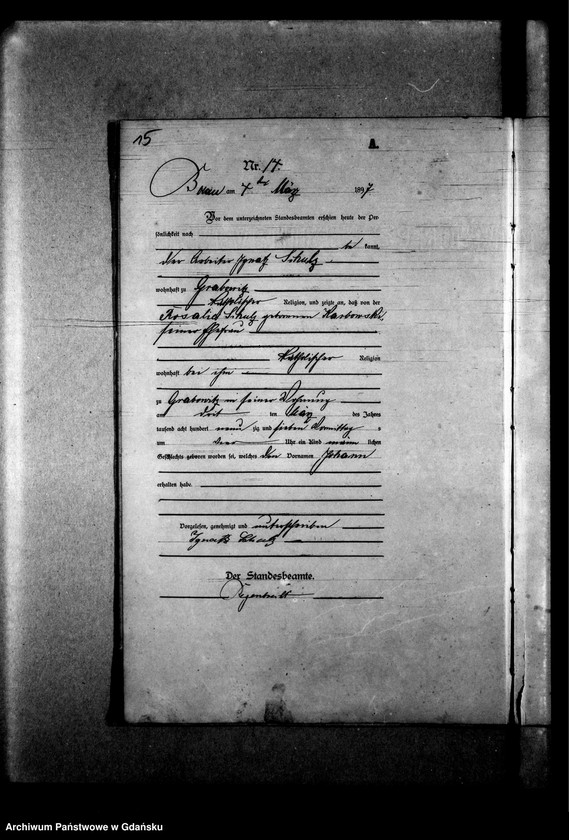 15
A.
Nr. 14.
am 4 ten März 1897
Vor dem unterzeichneten Standesbeamten erschien heute der Per
sönlichkeit nach
be kannt,
der Arbeiter Ignatz Schulz
wohnhaft zu Grabowitz
katholischer Religion, und zeigte an, daß von der
Rosalia Schulz geborenen Karbowski,
seiner Ehefrau
katholischer Religion
wohnhaft bei ihm
zu Grabowitz in seiner Wohnung
am ten März des Jahres
tausend acht hundert neun zig und sieben Vormittag s
um Uhr ein Kind männ lichen
Geschlechts geboren worden sei, welches den Vornamen Johann
erhalten habe.
Vorgelesen, genehmigt und unterschrieben
Ignatz
Der Standesbeamte.
Archiwum Państwowe w Gdańsku